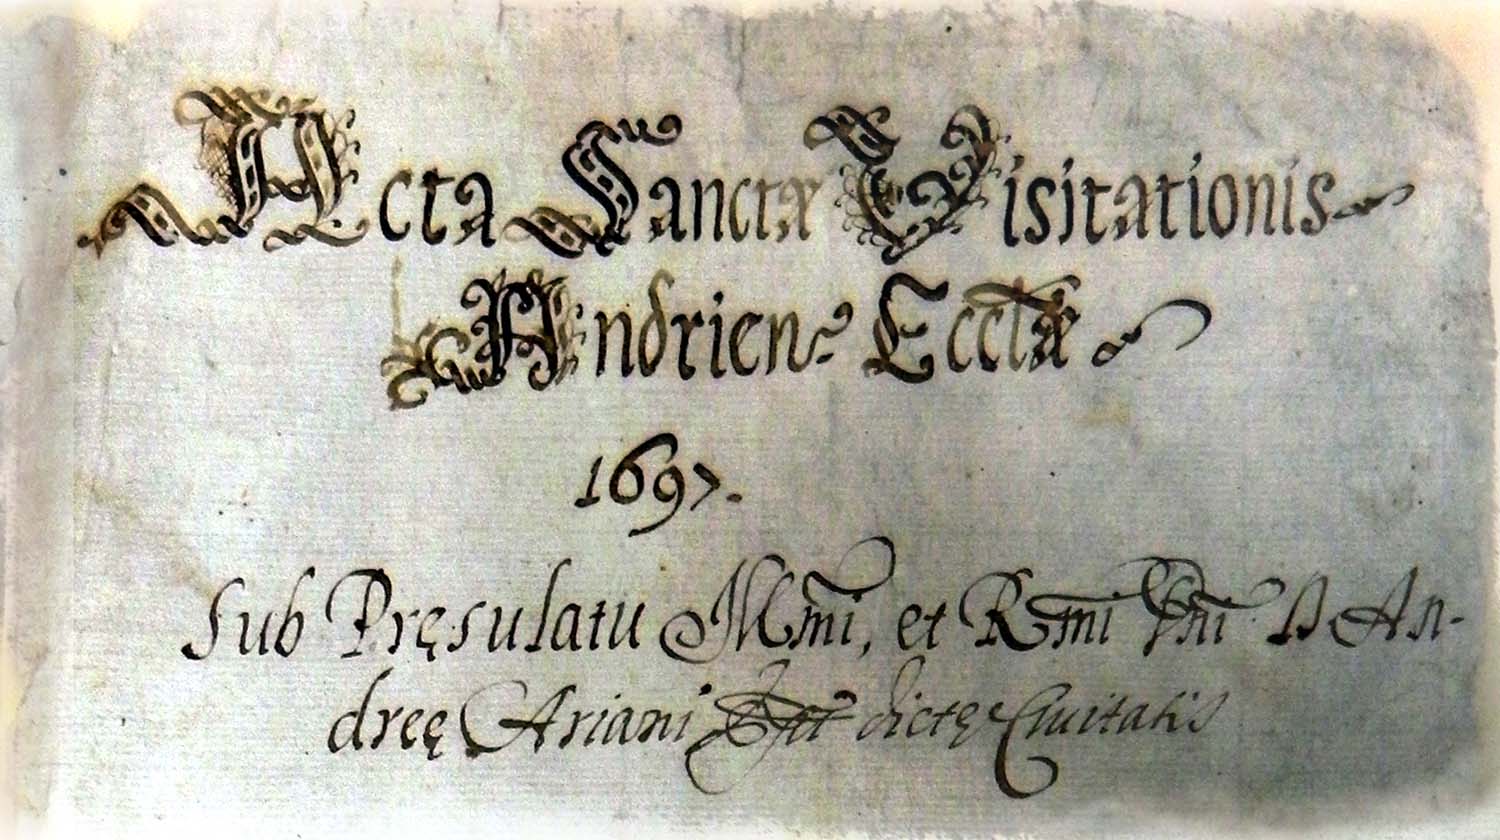 Acta Sanctæ Visitationis
Andrien: Eccłæ
1697.
Sub Pręsulatu Illmi, et Rmi Dni D. An-
dreę Ariani dictę Ciuitatis